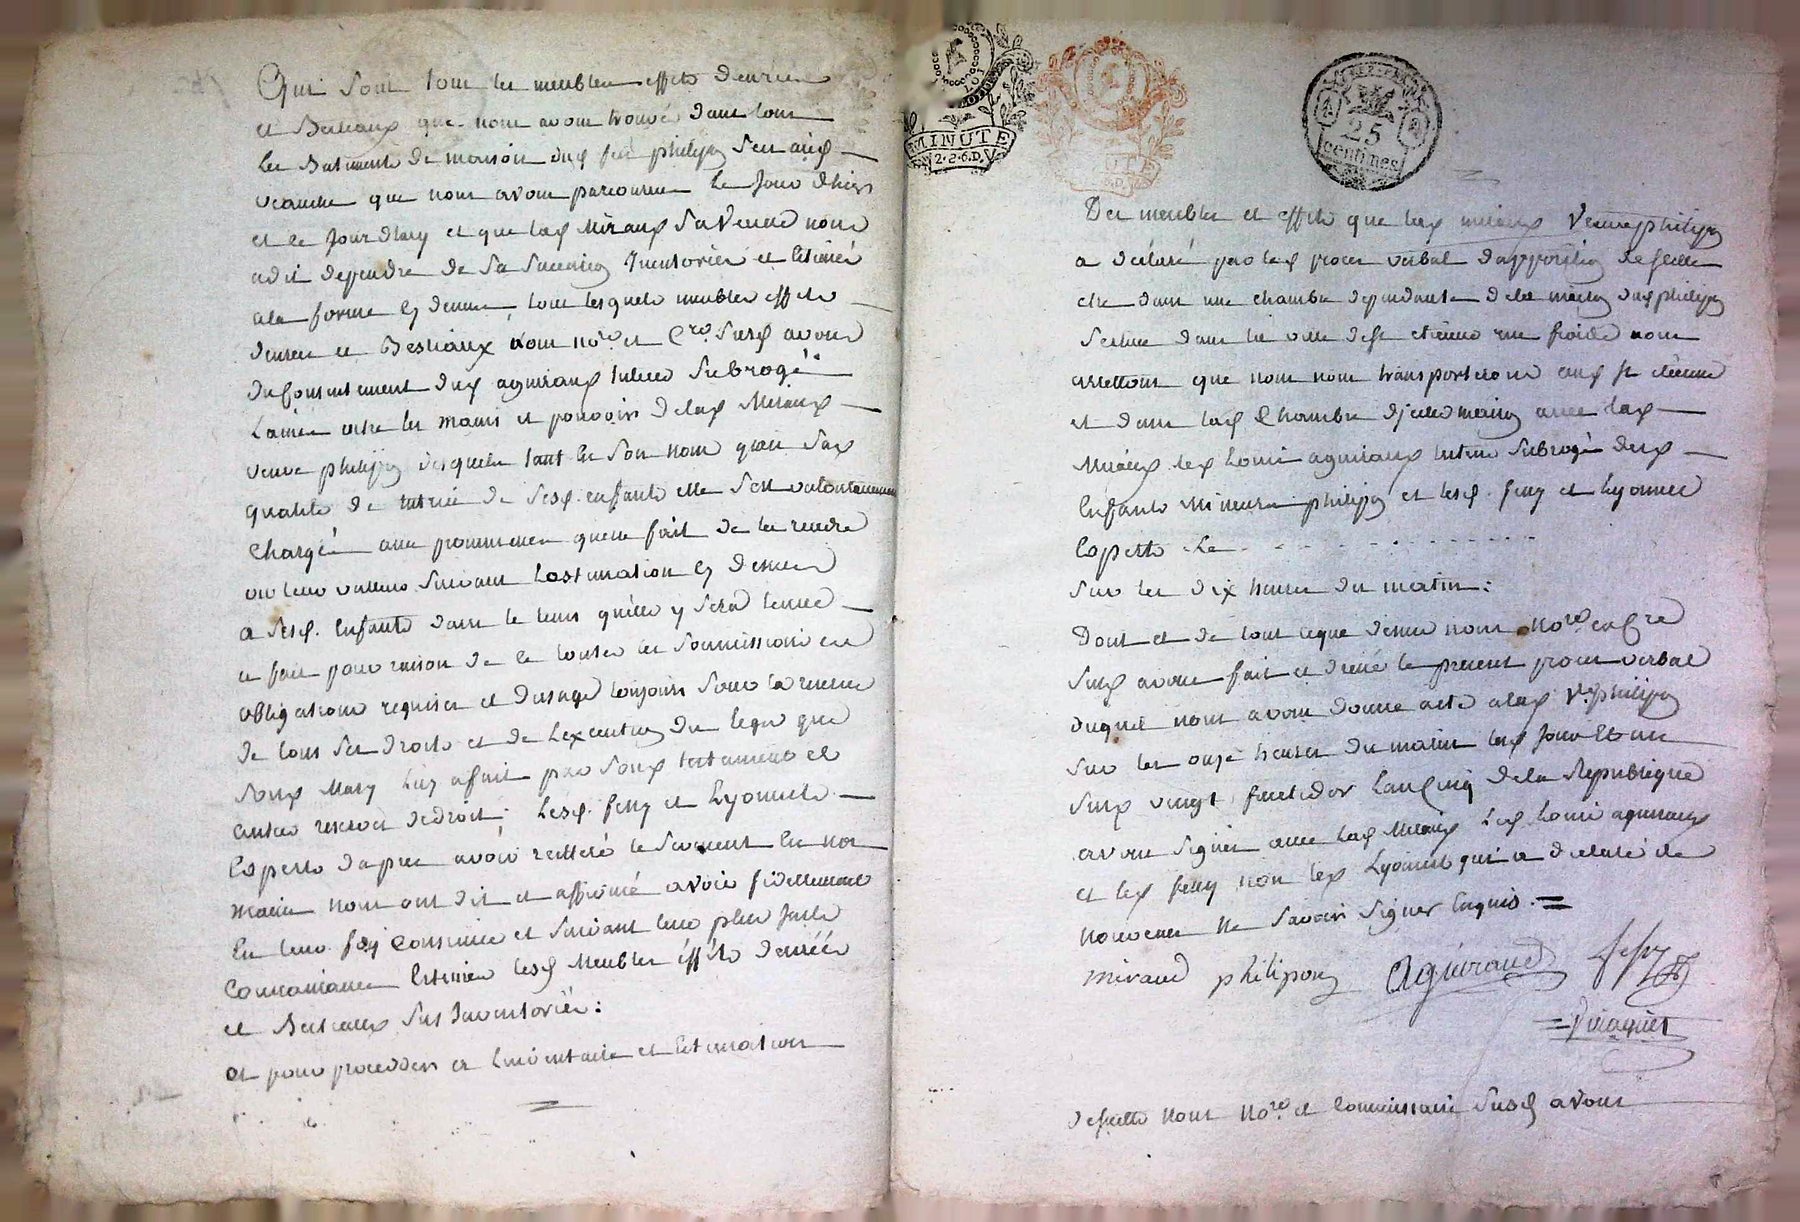 Qui sont tous les meubles effets denrées
et Bestiaux que nous avons trouvé dans tous
les Batiments de maison dud feu philipon
que nous avons parcourus le jour dhier
et ce jourdhuy et que lad Miraud sa Veuve nous
a dit dependre de sa succession Inventoriés et Estimés
a la forme cy dessus, tous lesquels meubles effets
denrées et Bestiaux nous no.re et C.re Susd avons
du consentement dud aguiraud tuteur Subrogé
Laissé entre les mains et pouvoirs de lad Miraud
veuve philipon desquels tant En son nom quen sad
qualité de tutrice de sesd. enfants elle sest volontairement
Chargée avec promesse quelle fait de les rendre
ou leur valleur suivant Lestimation cy dessus
a sesd. Enfants dans le tems quelle y sera tenue
a fait pour raison de ce toutes les soumissions et
obligations requises et dusage toujours sous la reserve
de tous ses droits et de Lexecution du legs que
sond Mary Luy a fait par sond testament et
autres reserves de droit; Lesd. fessy et Lyonnet
Experts dapres avoir reitteré le serment En nos
mains nous ont dit et affirmé avoir fidellement
En leur foy Conscience et suivant leur plus juste
Connoissance Estimés lesd Meubles éffets denrées
et Bestiaux sus Inventoriés:
et pour proceder a Linventaire et Estimation
MINUTE
2.S.6.D.
25
centimes
Des meubles et effets que lad miraud Veuve philipon
a déclaré par led procès verbal dapposition de scellés
etre dans une chambre dependante de la maison dud philipon
située dans la ville de st etienne rue froide nous
arrettons que nous nous transporterons aud st etienne
et dans lad Chambre dicelle maison avec lad
Miraud led Louis aguiraud tuteur Subrogé desd
Enfants Mineurs philipon et lesd. fessy et Lyonnet
Experts Le
sur les dix heures du matin:
Dont et de tout ceque dessus nous No.re et C.re
susd avons fait et dressé le present procès verbal
duquel nous avons donné acte a lad V.e philipon
sur les onze heures du matin lesd jour et an
susd vingt fructidor Lan Cinq de la Republique
avons signés avec lad Miraud Led Louis aguiraud
et led fessy non led Lyonnet qui a declaré de
nouveau Ne savoir signer Enquis.=
miraud philipon Aguiraud fessy
desuitte Nous No.re et Commissaire Susd avons